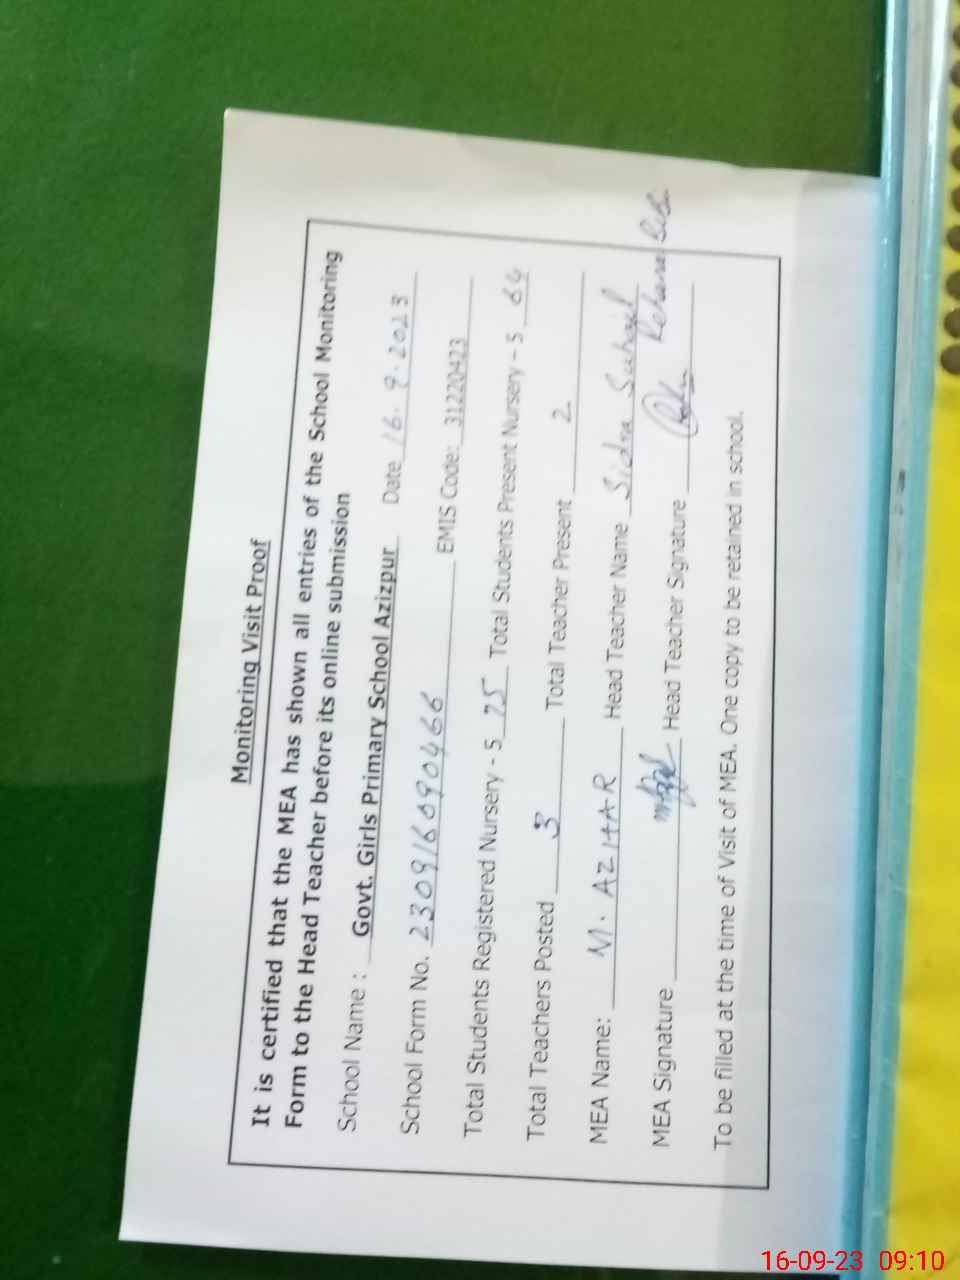 Monitoring Visit Proof
It is certified that the MEA has shown all entries of the School Monitoring
Form to the Head Teacher before its online submission
School Name : Govt. Girls Primary School Azizpur Date 16.9.2023
School Form No. 230916090466 EMIS Code: 31220423
Total Students Registered Nursery - 5 75 Total Students Present Nursery - 5 64
Total Teachers Posted 3 Total Teacher Present 2
MEA Name: M. AZHAR Head Teacher Name Sidra Sohail
MEA Signature Head Teacher Signature Rehana Bibi
To be filled at the time of Visit of MEA. One copy to be retained in school.
16-09-23 09:10